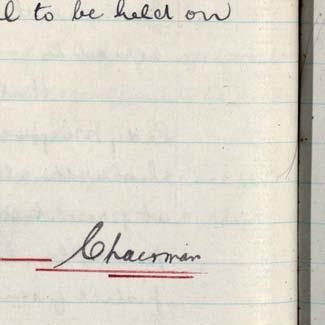 l to be held on
Chairman